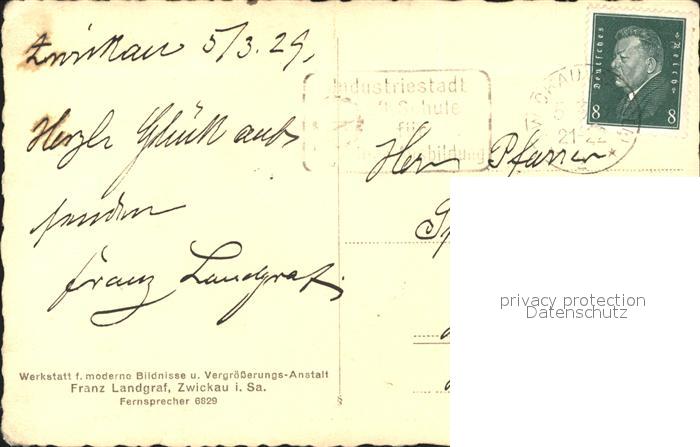 Zwickau 5/3.29,
Herzl. Glück auf
senden
Franz Landgraf.
Werkstatt f. moderne Bildnisse u. Vergrößerungs-Anstalt
Franz Landgraf, Zwickau i. Sa.
Fernsprecher 6829
Deutsches Reich
8 8
Industriestadt
Schule
für
bildung
21-22
Herrn Pfarrer
privacy protection
Datenschutz